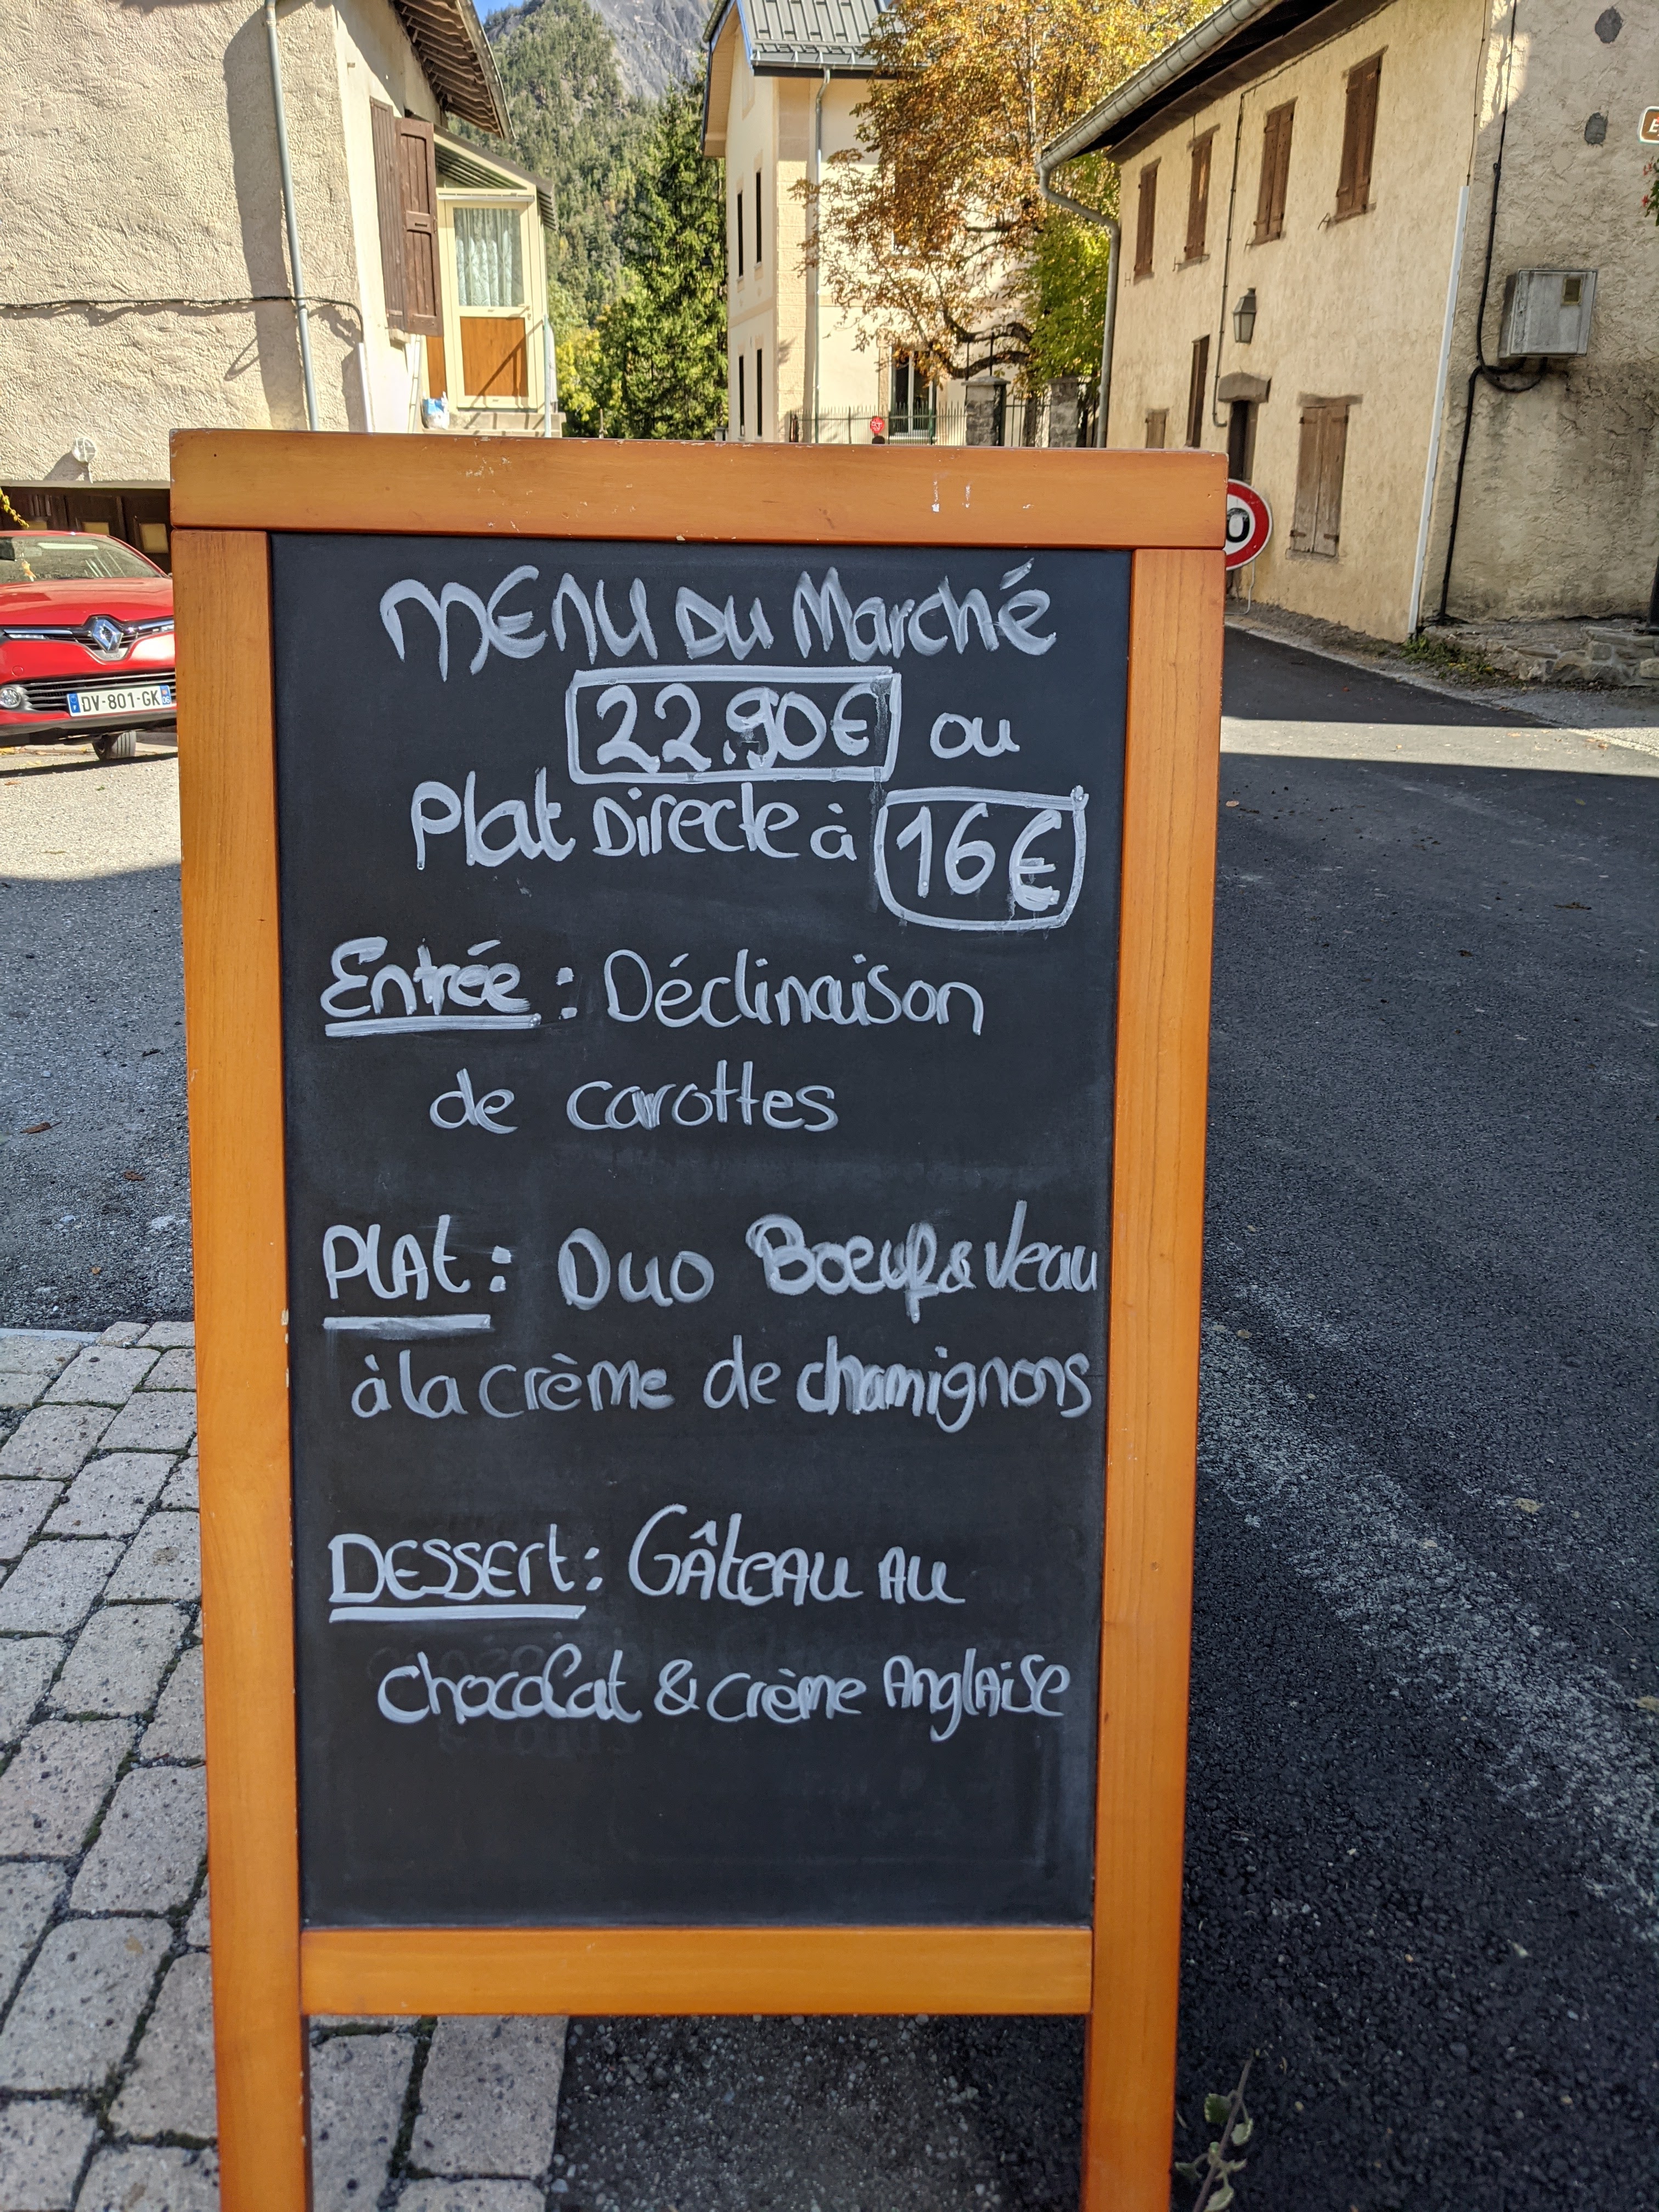 MENU DU Marché
22.90€ ou
Plat Directe à 16€
Entrée : Déclinaison
de carottes
PLAt : Duo Boeuf & Veau
à la crème de chamignons
DESSErt : GÂteAU AU
chocolat & crème AnglAise
DV-801-GK